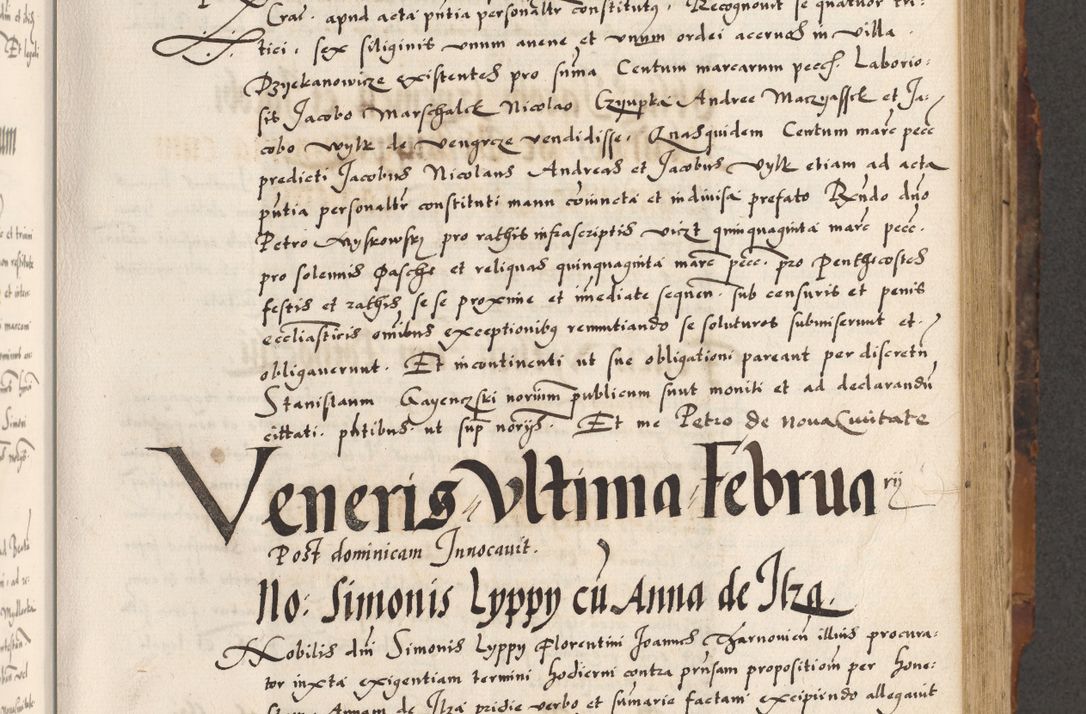 Crac. apud acta pntia personalr constitutus. Recognovit se quatuor tri-
tici, sex siliginis unum avene et unum ordei acervos in villa
Dzyekanowicze existentes pro suma Centum marcarum pecc. Laborio:
sis Jacobo Marschalek Nicolao Czyupka Andree Maczyassek et Ja-
cobo Wylk de Vengrcze vendidisse. Quasquidem Centum marc pecc
predicti Jacobus Nicolaus Andreas et Jacobus Vylk etiam ad acta
pntia personalr constituti manu coniuncta et indivisa prefato Rndo dno
Petro Myskowsky pro rathis infrascriptis vizt quinquaginta marc pecc.
pro solennis Paschе et reliquas quinquaginta marc pecc. pro Penthecostes
festis et rathis se se proxime et imediate sequen. sub censuris et penis
eccliasticis omibus exceptionibus renuntiando se soluturos submiserunt et
obligaverunt. Et incontinenti ut sue obligationi pareant per discretu
Stanislaum Gayenczski noriuim publicum sunt moniti et ad declarandu
cittati. pntibus ut sup norijs. Et me Petro de Nova Civitate
Veneris Ultima Februarij
Post dominicam Innocavit.
No: Simonis Lyppy cu Anna de Ilza.
Nobilis dni Simonis Lyppy Florentini Joannes Tharnovien illius procura:
tor iuxta exigentiam termini hodierni contra prnsam propositiom per hone:
stam Annam de Ilza pridie verbo et sumarie factam excipiendo allegavit